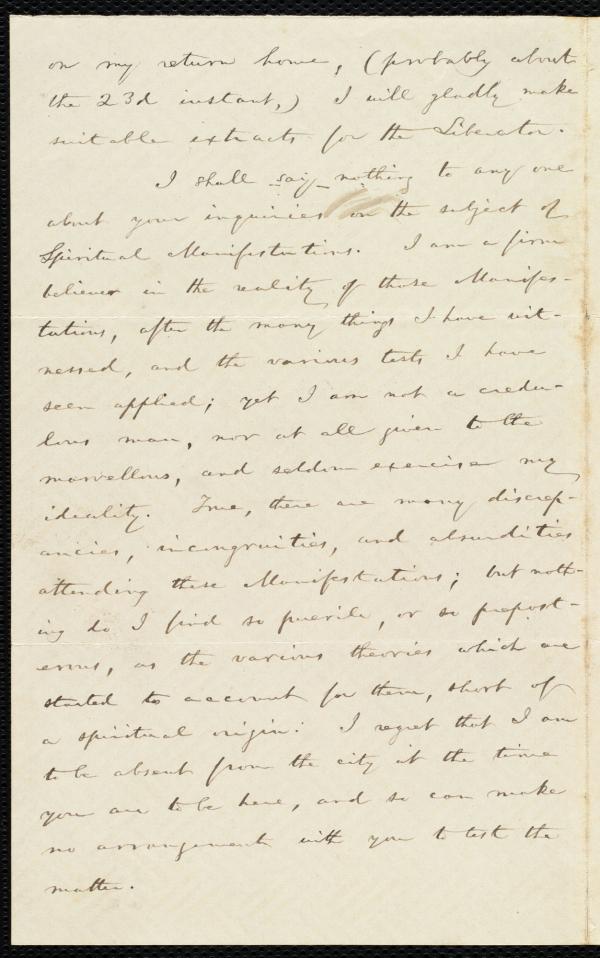 on my return home, (probably about
the 23d instant,) I will gladly make
suitable extracts for the Liberator.
I shall say nothing to any one
about your inquiries on the subject of
Spiritual Manifestations. I am a firm
believer in the reality of those Manifes-
tations, after the many things I have wit-
nessed, and the various tests I have
seen applied; yet I am not a credu-
lous man, nor at all given to the
marvellous, and seldom exercise my
ideality. True, there are many discrep-
ancies, incongruities, and absurdities
attending these Manifestations; but noth-
ing do I find so puerile, or so prepost-
erous, as the various theories which are
started to account for them, short of
a spiritual origin. I regret that I am
to be absent from the city at the time
you are to be here, and so can make
no arrangement with you to test the
matter.